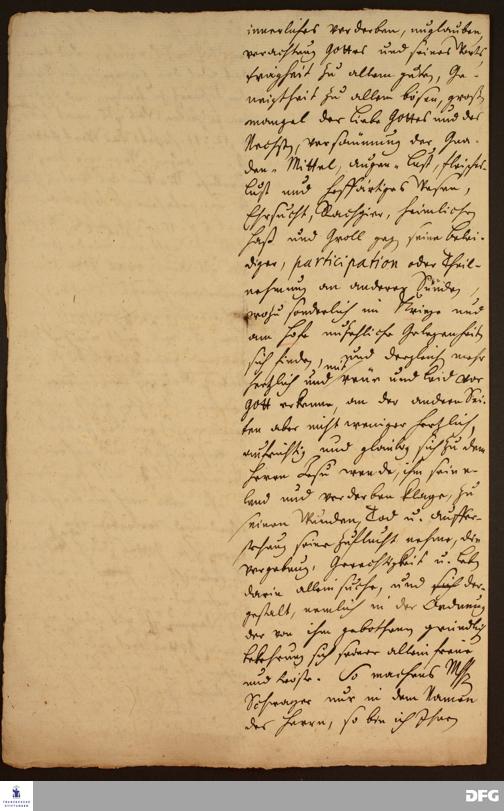 innerliches verderben, unglauben,
verachtung Gottes und seines Worts,
trägheit zu allem guten, Ge-
neigtheit zu allem bösen, großen
mangel der liebe Gottes und des
Nechsten, versäumung der Gna-
den-Mittel, augen-lust, fleisches-
lust und hoffärtiges Wesen,
Ehrsucht, Rachgier, heimlichen
haß und Groll gegen seine belei-
diger, participation oder Theil-
nehmung an anderer Sünden,
wozu sonderlich im Kriege und
am hofe unsehliche Gelegenheiten
sich finden, und dergleichen mehr
hertzlich und mit reue und leid vor
Gott erkenne, an der andern Sei-
ten aber nicht weniger hertzlich,
aufrichtig und gläubig sich zu dem
Herrn Jesu wende, ihm sein e-
lend und verderben klage, zu
seinen Wunden, Tod u. Auffer-
stehung seine zuflucht nehme, die
vergebung, Gerechtigkeit u. leben
darin allein suche, und der-
gestalt, nemlich in der Ordnung
der von ihm gebothenen gründlichen
bekehrung sich seiner allein freue
und tröste. So machens
Schrager nur in dem Namen
des Herrn, so bin ich Ihnen
FRANCKESCHE
STIFTUNGEN
DFG